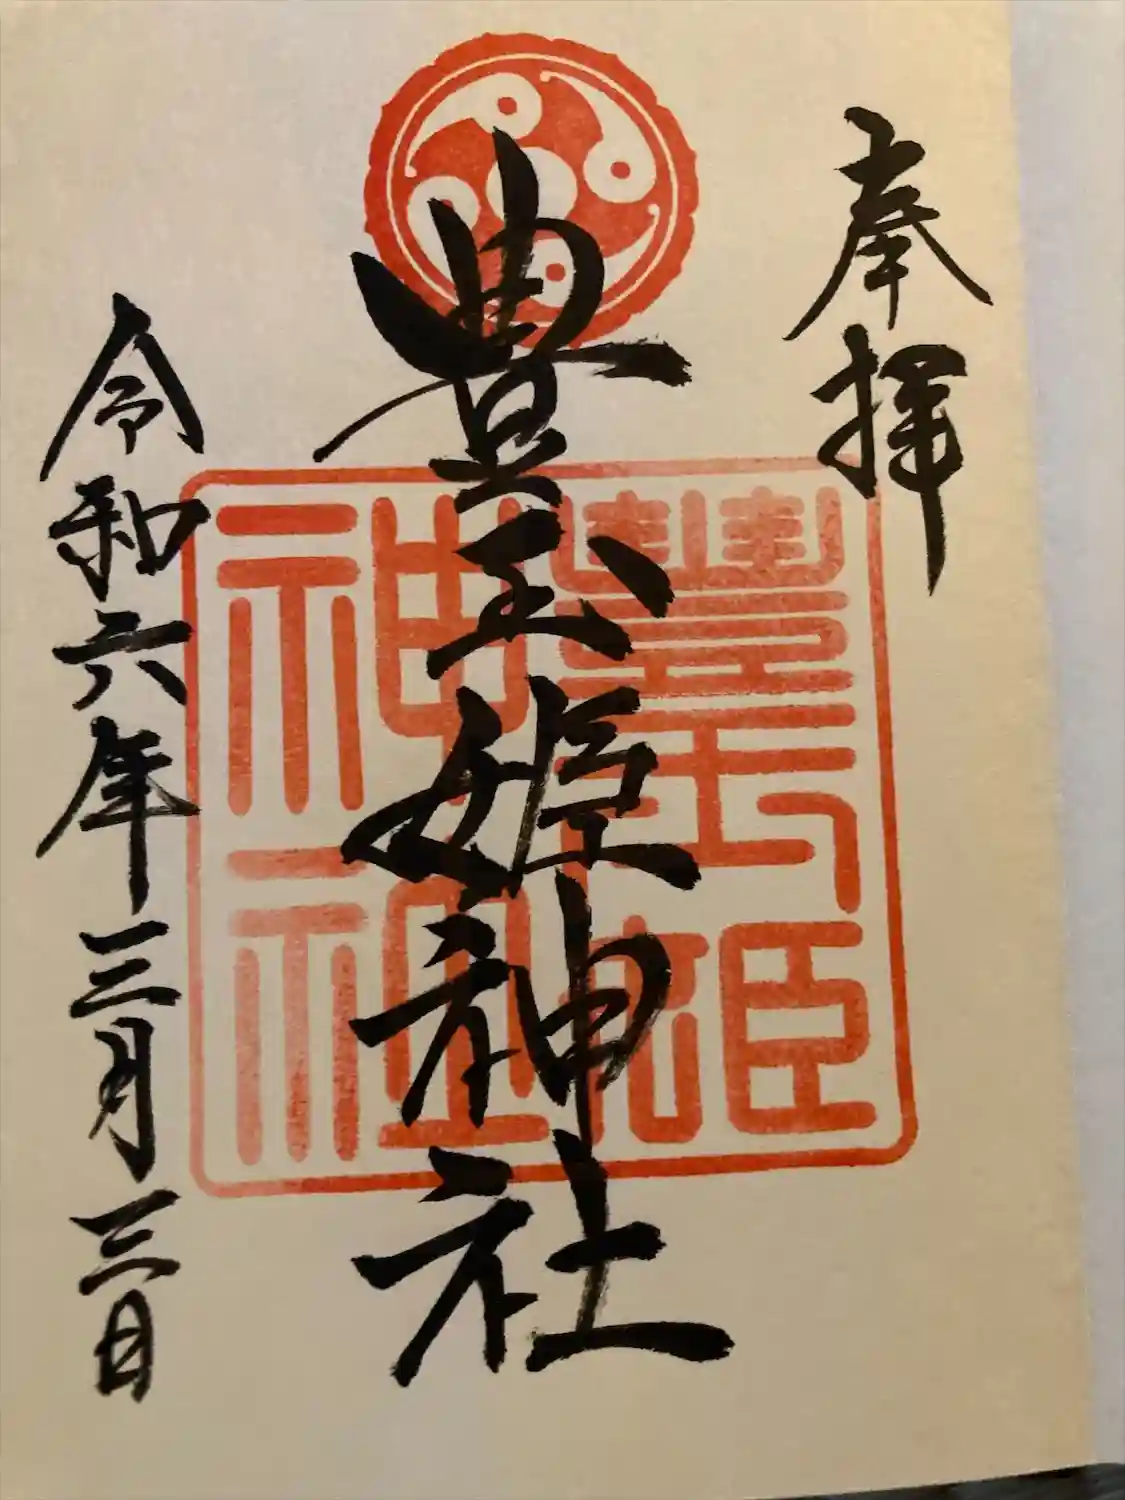 奉拝
豊玉姫神社
豊玉姫
神社
令和六年三月三日